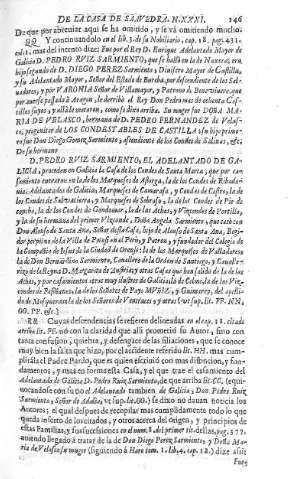 DE LA CASA DE SAAVEDRA. N.XXXI. 146
De que por abreviar aqui se ha omitido, y se vá omitiendo mucho.
QQ Y continuando en el lib.3. de su Nobiliario, cap. 18. pag. 431.
mas del intento dize: Fue por el Rey D. Enrique Adelantado Mayor de
Galicia D. PEDRO RUIZ SARMIENTO, que se halló en la de
hijo segundo de D. DIEGO PEREZ Sarmiento, Divisero Mayor de Castilla,
y su Adelantado Mayor, Señor del Estado de descendiente de los Sal-
vadores, y por VARONIA Señor de Villamayor, y Patrono de
que por averse passado à Aragon, le heredó el Rey Don Pedro mas de ochenta Cas-
tillos suyos y allà le mataron, como se dixo arriba. Su muger fue DOÑA MA-
RIA DE VELASCO, hermana de D. PEDRO FERNANDEZ de Velas-
co, progenitor de LOS CONDESTABLES DE CASTILLA su hijo prime-
ro fue Don Diego Gomez Sarmiento, ascendiente de los Condes de Salinas, &c.
De su hermano
D. PEDRO RUIZ SARMIENTO, EL ADELANTADO DE GA-
LICIA, proceden en Galicia la Casa de los Condes de Santa Marta, que por ca-
samiento entraron en la de los Marqueses de Astorga, la de los Condes de Ribada-
via Adelantados de Galicia, Marqueses de Camarasa, y Condes de Castro, la de
los Condes de Salvatierra, y Marqueses de Sobroso, la de los Condes de Pie de
concha, la de los Condes de Gondomar, la de las Achas, y Vizcondes de Portillo,
y la de su hermana del primer Vizconde, Doña Angela Sarmiento, que casò con
Don Alonso de Santa Ana, Señor desta Casa, hijo de Alonso de Santa Ana, Regi-
dor perpetuo de la Villa de Potosì en el Perù, y Patron, y fundador del Colegio de
la Compañia de Jesus de la Ciudad de Orense; la de los Marqueses de Valladares
la de Don Bernardino Sarmiento, Cavallero de la Orden de Santiago, y Cavalle-
rizo de la Reyna D. Margarita de Austria, y otras Casas que han salido de la de los
Achas, y por casamientos otras muy ilustres de Galicia, la de Cobos, la de los Viz-
condes de la de los Señores de Pap y Guimarey, del apelli-
do de Mosquera, la de los Señores de y otras (ut sup. lit. FF. NN.
GG. PP. &c.)
RR Cuyas descendencias se refieren delineadas en el cap. 12. citado
arriba lit. FF. no con la claridad que alli prometió su Autor, sino con
tanta confusion, quiebra, y desengace de las filiaciones, que se conoce
muy bien la falta que hizo, por el accidente referido lit. HH. mas cum-
plirala el Padre Pardo, que es quien escrivió con mas distincion, y fun-
damentos, y nasa en forma esta Casa, y el que trae el casamiento del
Adelantado de Galicia D. Pedro Ruiz Sarmiento, de que arriba lit. CC. (equi-
vocandose con su tio el Adelantado tambien de Galicia, Don Pedro Ruiz
Sarmiento, Señor de Adalia, ut sup. lit. GG.) se dixo no davan noticia los
Autores; el qual despues de recopilar mas cumplidamente todo lo que
queda inserto de los citados, y otros acerca del origen, y principios de
estas familias, y sus sucessiones en el num. 2. del primer tit. dellas, pag. 577.
aviendo llegado à tratar de la de Don Diego Perez Sarmiento, y Doña Ma-
ria de Velasco su muger (siguiendo à Haro tom. 1. lib. 4. cap. 12.) dize assi:
Fuey